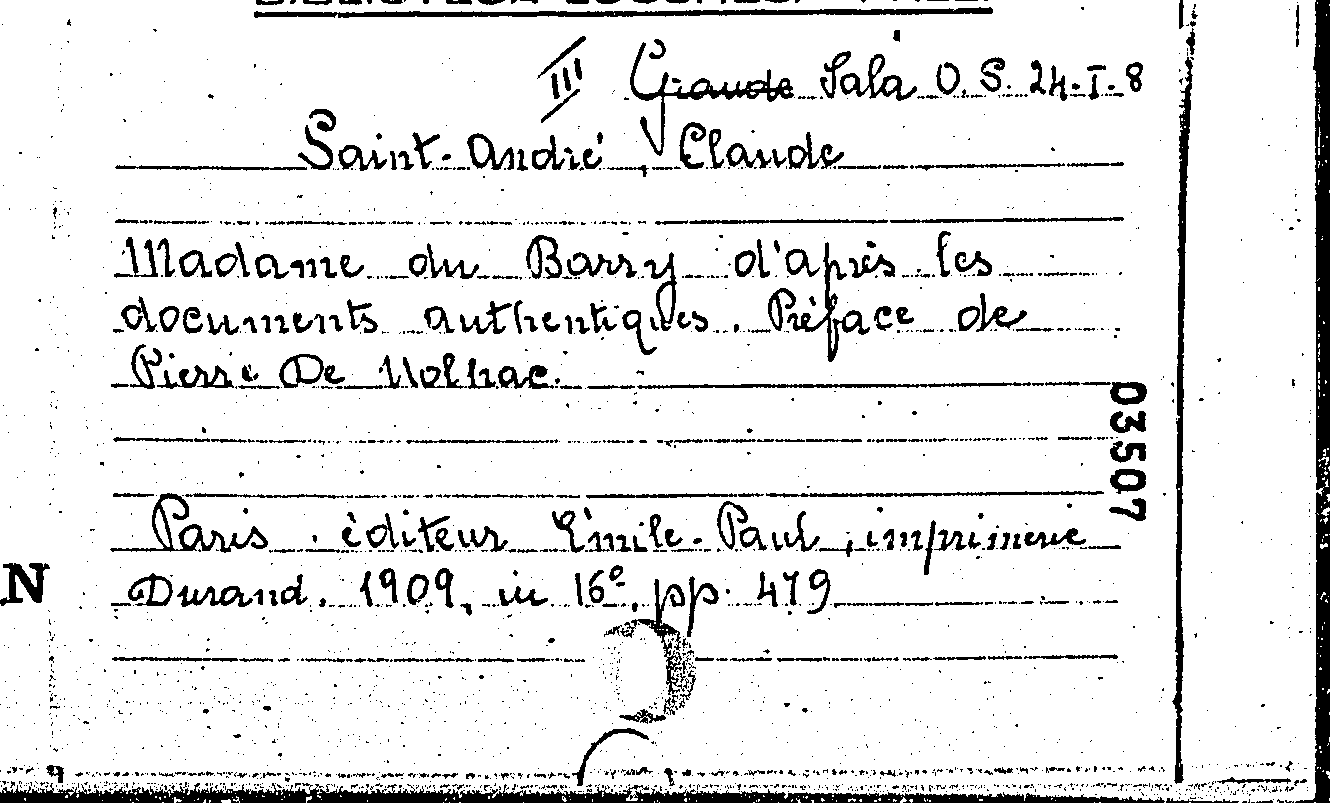 III Grande Sala O. S. 24-I-8
Saint-André, Claude
Madame du Barry d'après les
documents authentiques. Préface de
Pierre De Nolhac.
03507
Paris. éditeur Émile-Paul, imprimerie
N
Durand. 1909, in 16º, pp. 479